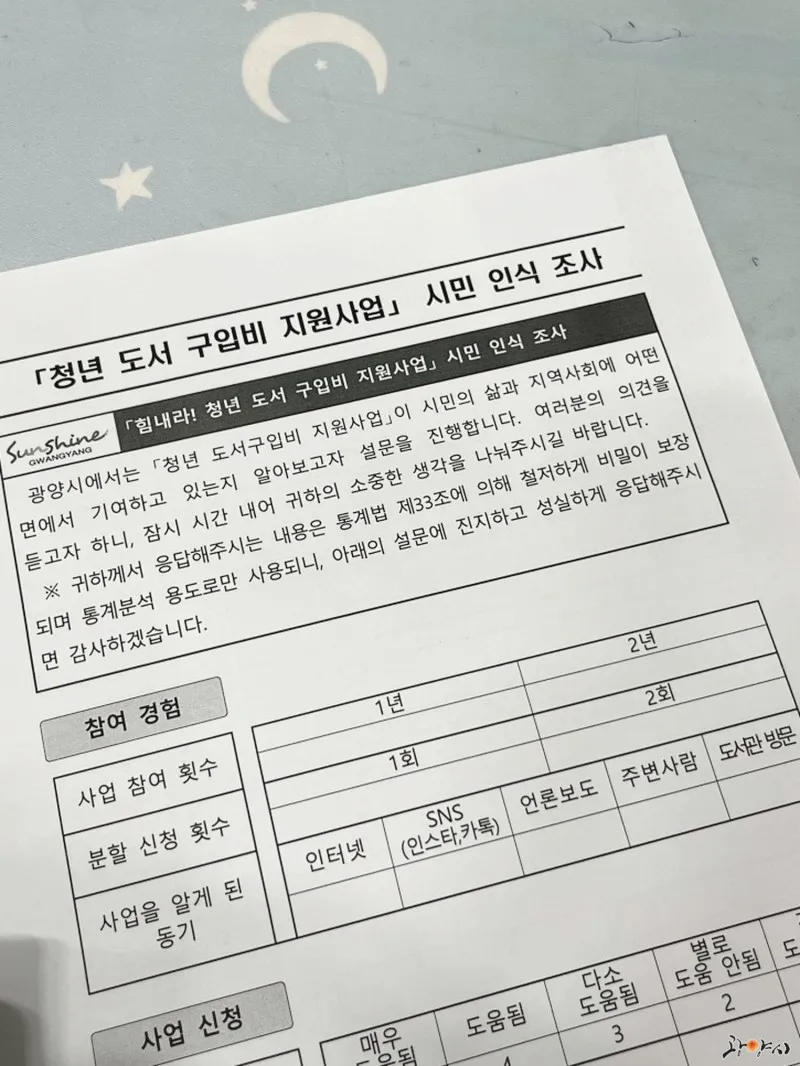 「청년 도서 구입비 지원사업」 시민 인식 조사
Sunshine
GWANGYANG
「힘내라! 청년 도서 구입비 지원사업」 시민 인식 조사
광양시에서는 「청년 도서구입비 지원사업」이 시민의 삶과 지역사회에 어떤
면에서 기여하고 있는지 알아보고자 설문을 진행합니다. 여러분의 의견을
듣고자 하니, 잠시 시간 내어 귀하의 소중한 생각을 나눠주시길 바랍니다.
※ 귀하께서 응답해주시는 내용은 통계법 제33조에 의해 철저하게 비밀이 보장
되며 통계분석 용도로만 사용되니, 아래의 설문에 진지하고 성실하게 응답해주시
면 감사하겠습니다.
참여 경험
사업 참여 횟수
1년 2년
분할 신청 횟수
1회 2회
사업을 알게 된
동기
인터넷
SNS
(인스타,카톡)
언론보도
주변사람
도서관 방문
사업 신청
매우
도움됨
도움됨
4
다소
도움됨
3
별로
도움 안됨
2
광양시